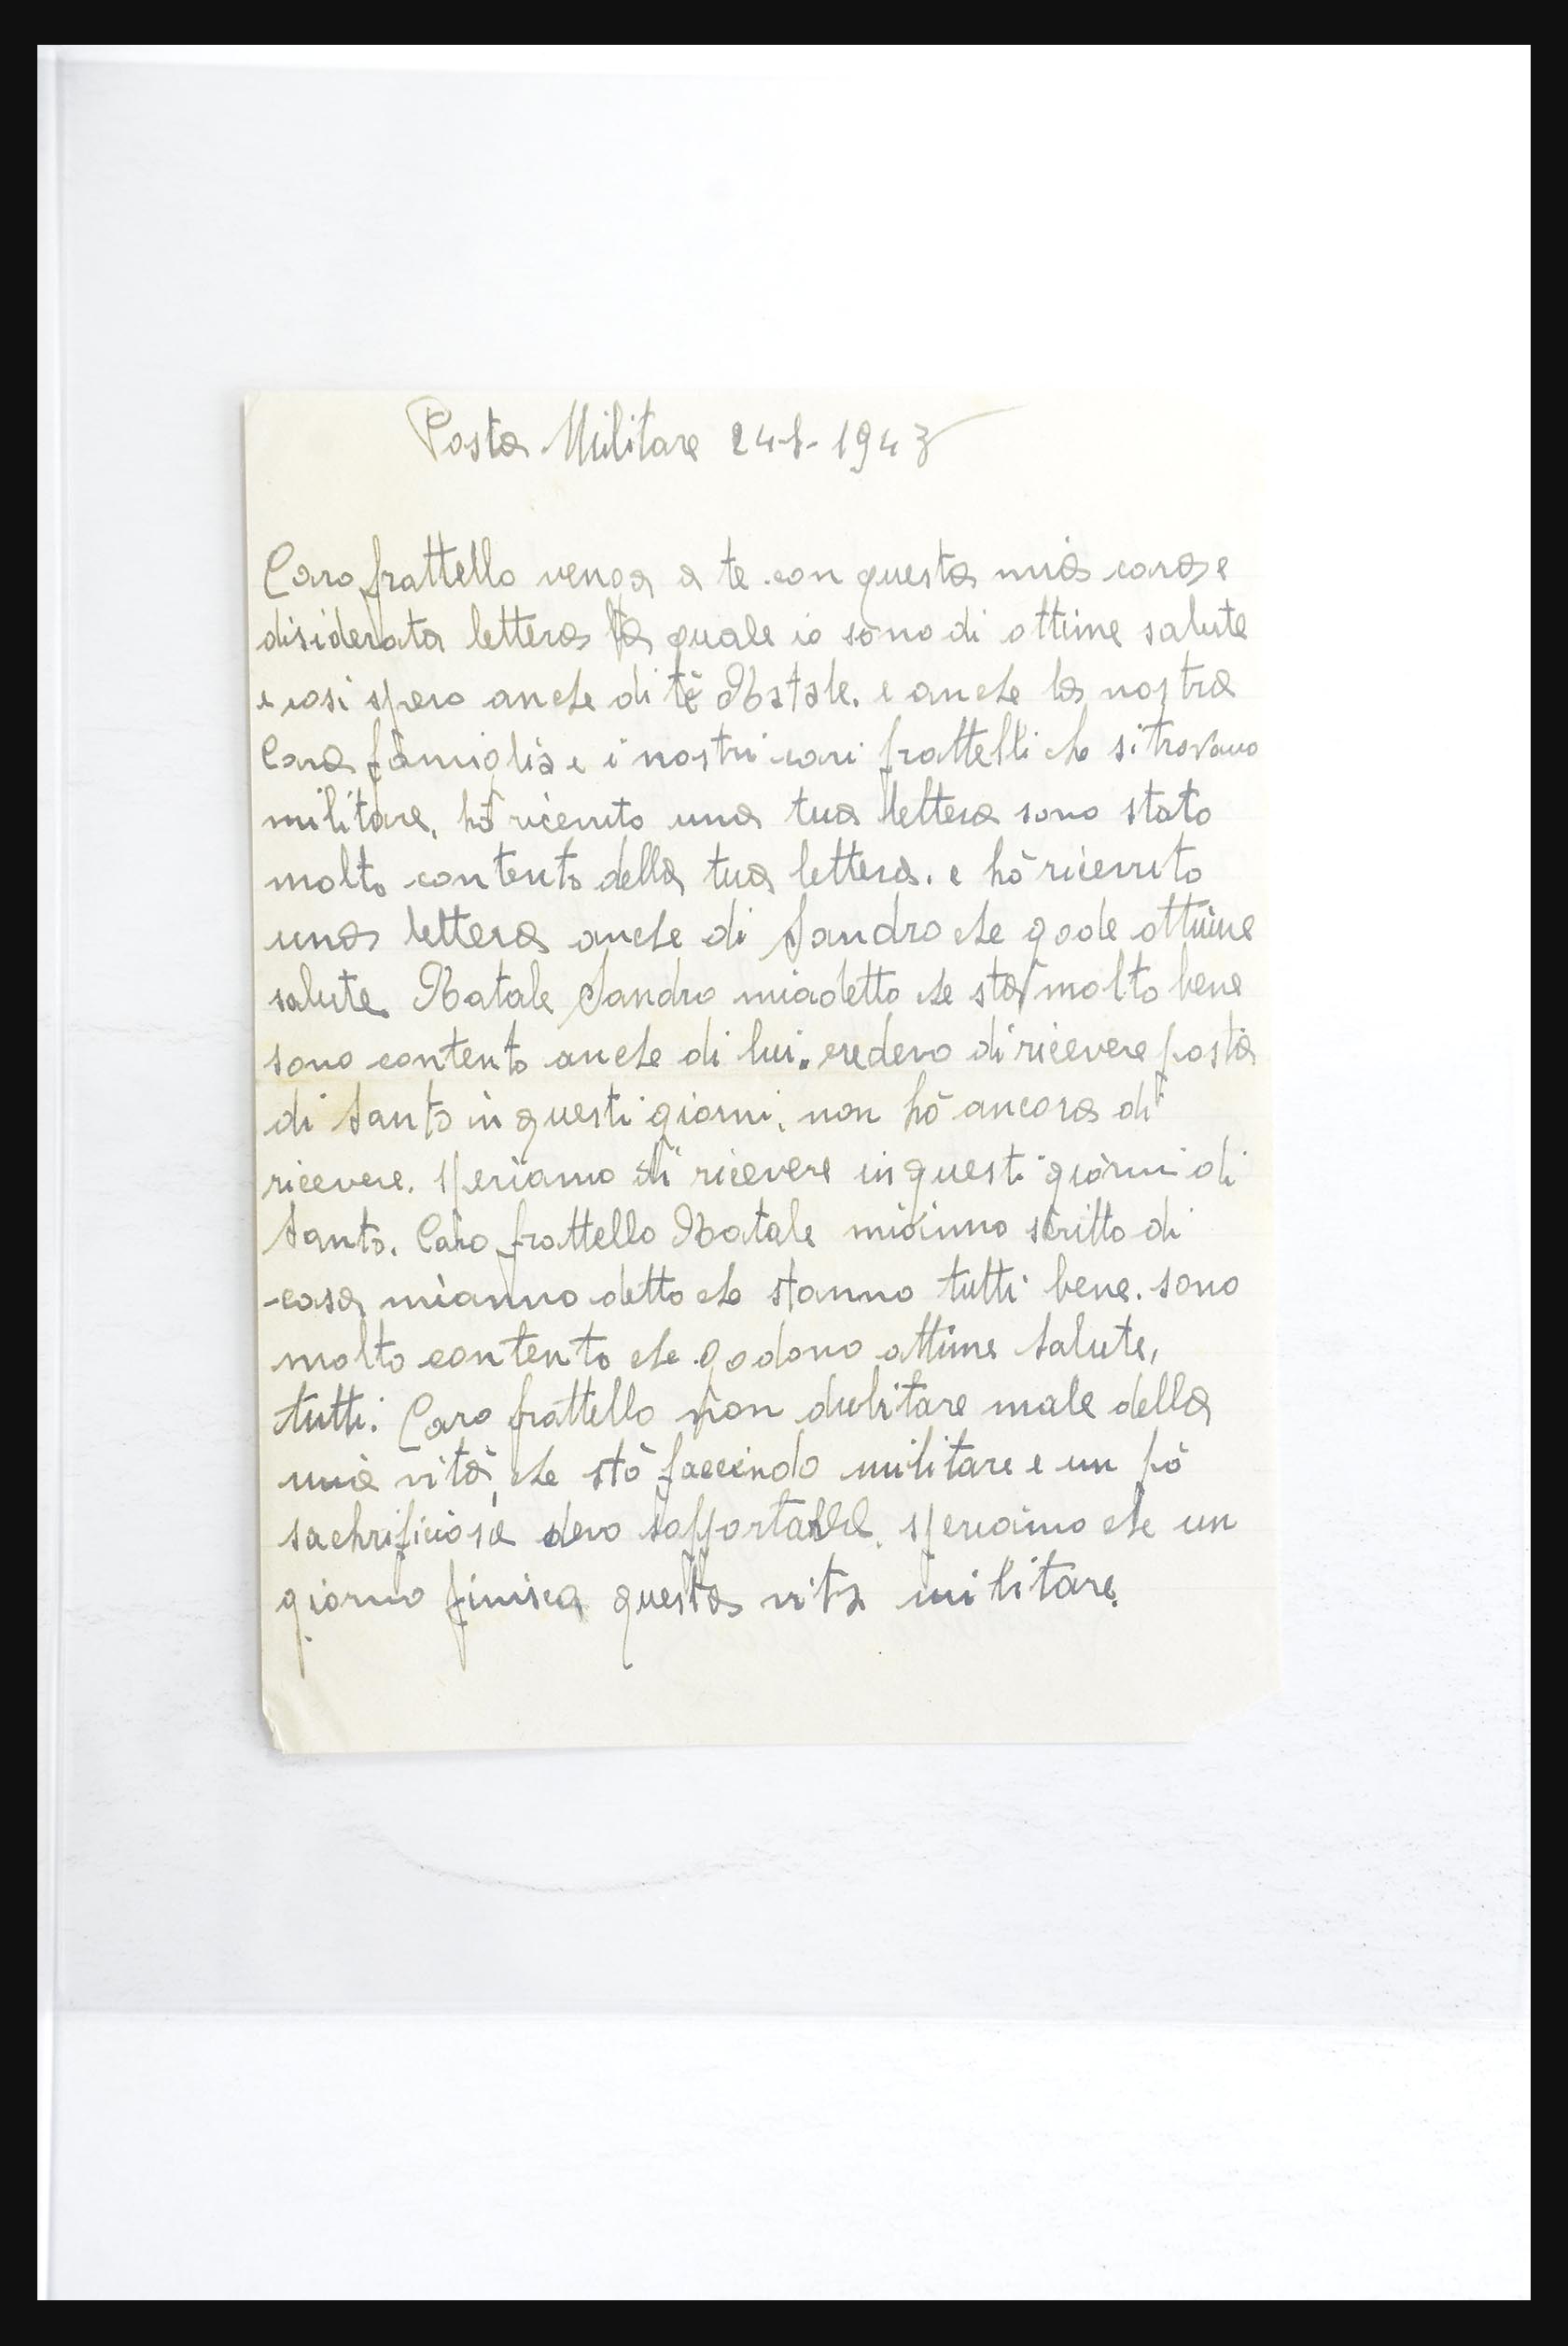 Posta Militare 24-1-1943
Caro frattello venga a te con questa mia cara e
disiderata lettera la quale io sono di ottime salute
e cosi spero anche di tè Natale. e anche la nostra
Cara famiglia e i nostri cari frattelli che si trovano
militare, hò ricevuto una tua lettera sono stato
molto contento della tua lettera. e hò ricevuto
una lettera anche di Sandro che gode ottime
salute Natale Sandro miadetto che sta molto bene
sono contento anche di lui. credevo di ricevere posta
di Santo in questi giorni, non hò ancora di
ricevere. speriamo di ricevere in questi giorni di
Santo. Caro frattello Natale mianno scritto di
casa mianno detto che stanno tutti bene. sono
molto contento che godono ottime salute,
tutti. Caro frattello non dubitare male della
mia vità, che stò faccindo militare e un pò
sachrificiosa devo sopportare. speriamo che un
giorno finisca questa vita militare.